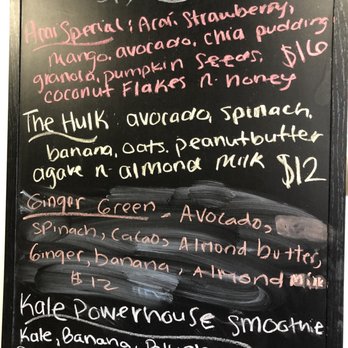 Acai Special: Acai, Strawberry,
mango, avocado, chia pudding
granola, pumpkin seeds, $16
coconut Flakes n. honey
The Hulk: avocado, spinach,
banana, oats, peanutbutter
agave n. almond milk $12
Ginger Green - Avocado,
spinach, cacao, Almond butter,
Ginger, banana, Almond milk
$12
Kale Powerhouse smoothie
Kale, Banana,